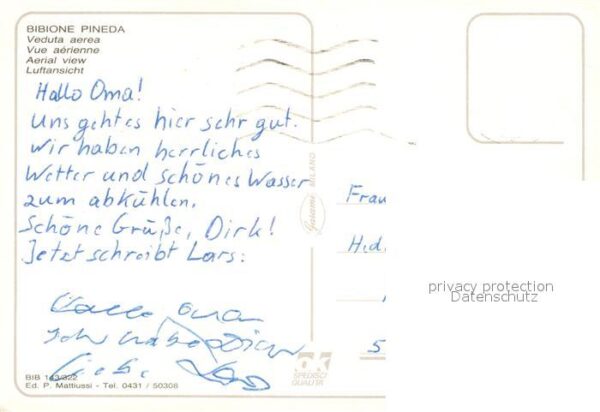 BIBIONE PINEDA
Veduta aerea
Vue aérienne
Aerial view
Luftansicht
Hallo Oma!
Uns geht es hier sehr gut.
Wir haben herrliches
Wetter und schönes Wasser
zum abkühlen.
Schöne Grüße, Dirk!
Jetzt schreibt Lars:
Hallo Oma
Ich habe Dich
Liebe Lars
BIB 143/322
Ed. P. Mattiussi - Tel. 0431 / 50308
MILANO
SPEDISCI
QUALITÀ
Frau
Hed
S
privacy protection
Datenschutz